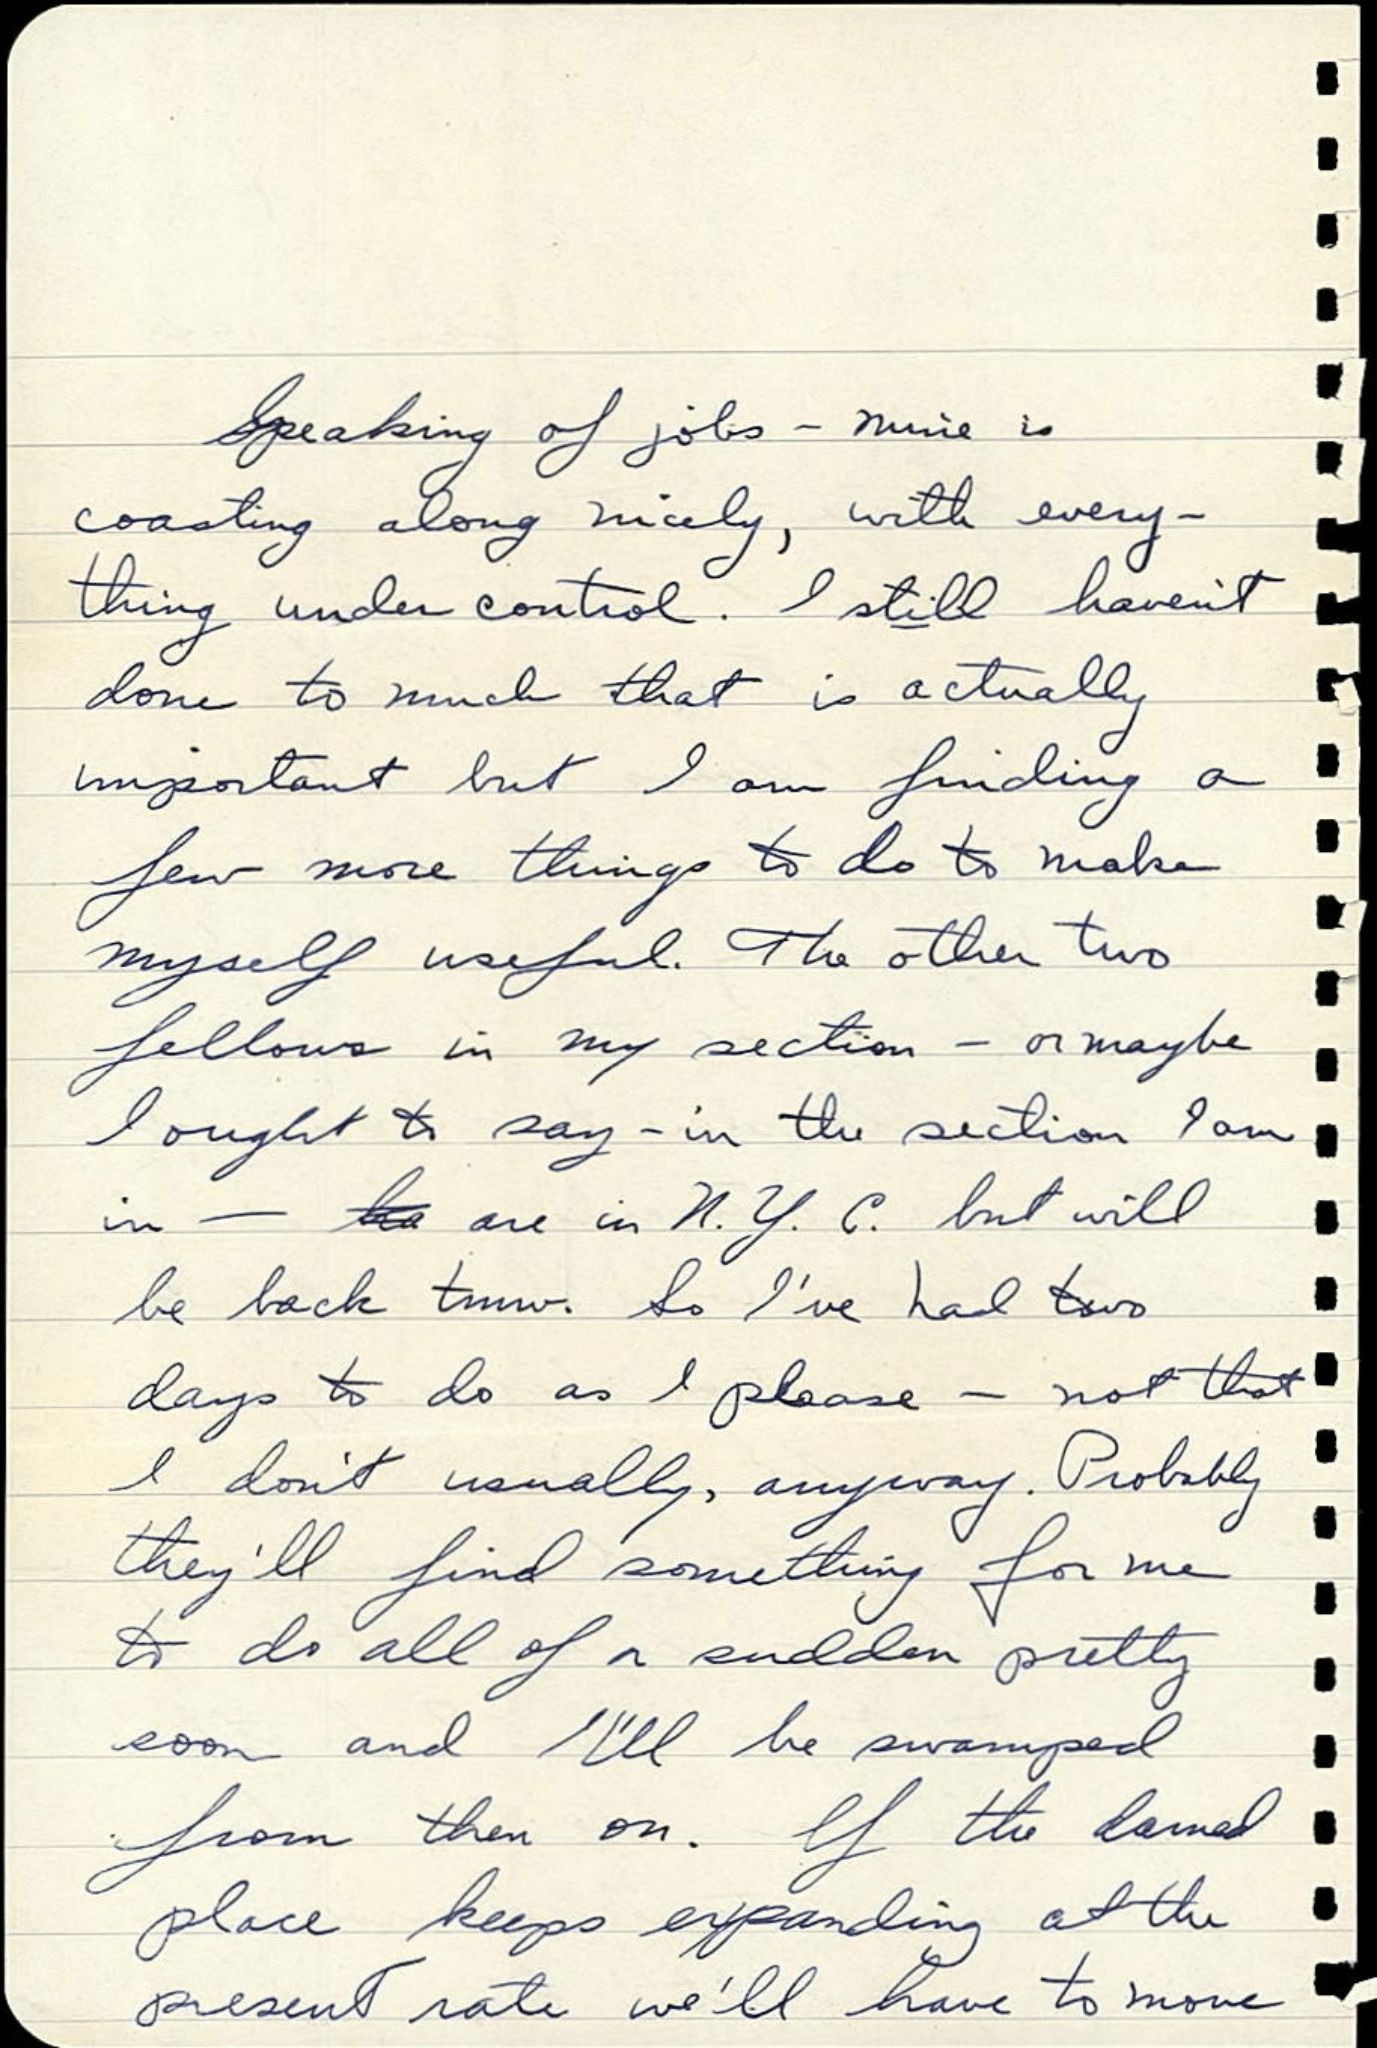 Speaking of jobs – mine is
coasting along nicely, with every-
thing under control. I still haven't
done to much that is actually
important but I am finding a
few more things to do to make
myself useful. The other two
fellows in my section – or maybe
I ought to say – in the section I am
in — are in N.Y.C. but will
be back tmw. So I've had two
days to do as I please – not that
I don't usually, anyway. Probably
they'll find something for me
to do all of a sudden pretty
soon and I'll be swamped
from then on. If the darned
place keeps expanding at the
present rate we'll have to move